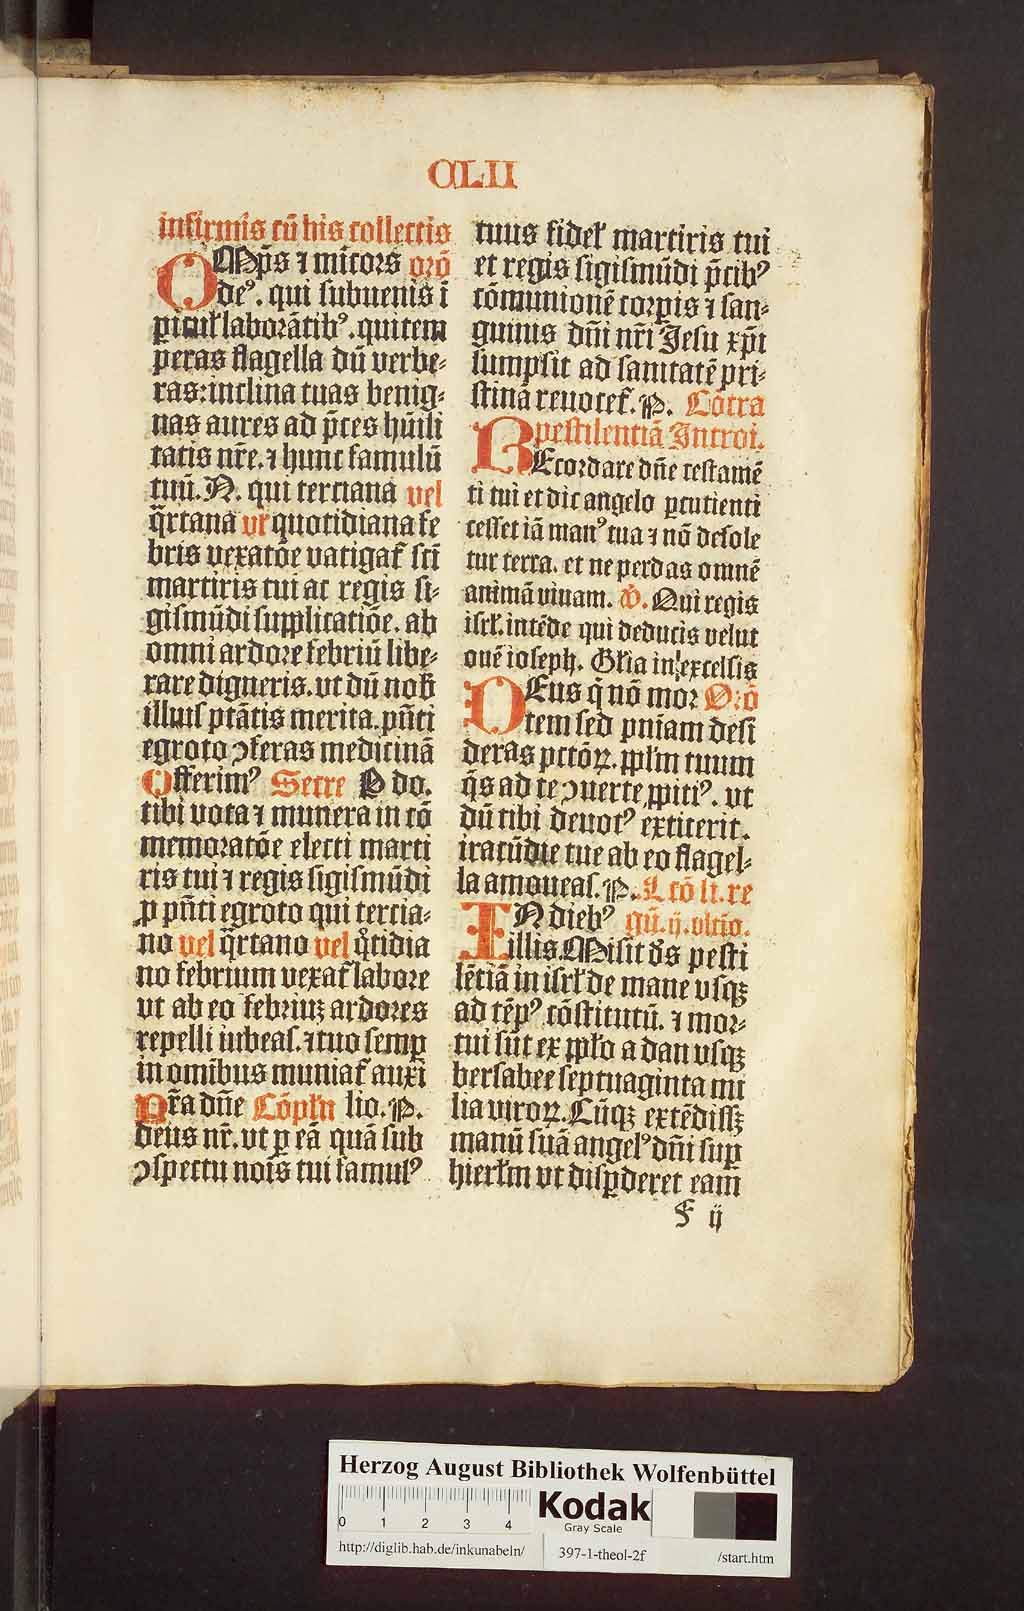 CLII
infirmis cū his collectis
OMp̄s ⁊ mīcors orō
deꝰ. qui subuenis ī
ꝑicul̄ laborātibꝰ. qui tem
peras flagella dū verbe⸗
ras: inclina tuas benig⸗
nas aures ad p̄ces hūili
tatis nr̄e. ⁊ hunc famulū
tuū. N. qui terciana vel
q̄rtana vl̄ quotidiana fe
bris vexatōe vatigat̄ sct̄i
martiris tui ac regis si⸗
gismūdi supplicatiōe. ab
omni ardore febriū libe⸗
rare digneris. vt dū nob̄
illius ptātis merita. pn̄ti
egroto ꝯferas medicinā
Offerimꝰ Secre P do.
tibi vota ⁊ munera in cō
memoratōe electi marti
ris tui ⁊ regis sigismūdi
ꝓ pn̄ti egroto qui tercia⸗
no vel q̄rtano vel q̊tidia
no febrium vexat̄ labore
vt ab eo febriuꝫ ardores
repelli iubeas. ⁊ tuo semꝑ
in omībus muniat̄ auxi
Pr̄a dn̄e Cōpl̄n lio. P.
deus nr̄. vt ꝑ eā quā sub
ꝯspectu nois tui famulꝰ
tuus fidel̄ martiris tui
et regis sigismūdi p̄cibꝰ
cōmunionē corꝑis ⁊ san⸗
guinis dn̄i nr̄i Jesu xp̄i
sumpsit ad sanitatē pri⸗
stinā reuocet̄. P. Cōtra
pestilentiā Introi.
REcordare dn̄e testamē
ti tui et dic angelo ꝑcutienti
cesset iā manꝰ tua ⁊ nō desole
tur terra. et ne perdas omnē
animā viuam. v̄. Qui regis
isrl̄. intēde qui deducis velut
ouē ioseph. Gl̄ia in excelsis
DEus q̄ nō mor Orō
tem sed pn̄iam desi
deras pctōꝝ. ppl̄m tuum
q̄s ad te ꝯuerte ꝓpitiꝰ. vt
dū tibi deuotꝰ extiterit.
iracūdie tue ab eo flagel⸗
la amoueas. P. L̄ctō li. re
IN diebꝰ gū. ij. vltīo.
illis. Misit dn̄s pesti
lētiā in isrl̄ de mane vsqꝫ
ad tēpꝰ cōstitutū. ⁊ mor⸗
tui sūt ex ppl̄o a dan vsqꝫ
bersabee septuaginta mi
lia viroꝝ. Cūqꝫ extēdissꝫ
manū suā angelꝰ dn̄i suꝑ
hierl̄m vt disꝑderet eam
F ij
Herzog August Bibliothek Wolfenbüttel
0 1 2 3 4
Kodak
Gray Scale
http://diglib.hab.de/inkunabeln/ 397-1-theol-2f /start.htm